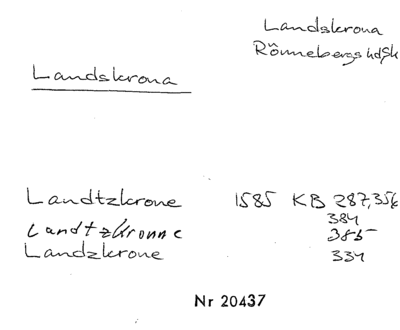 Landskrona
Rönnebergs hd, Sk
Landskrona
Landtzkrone 1585 KB 287,356
384
Landtzkronne 385
Landzkrone 334
Nr 20437